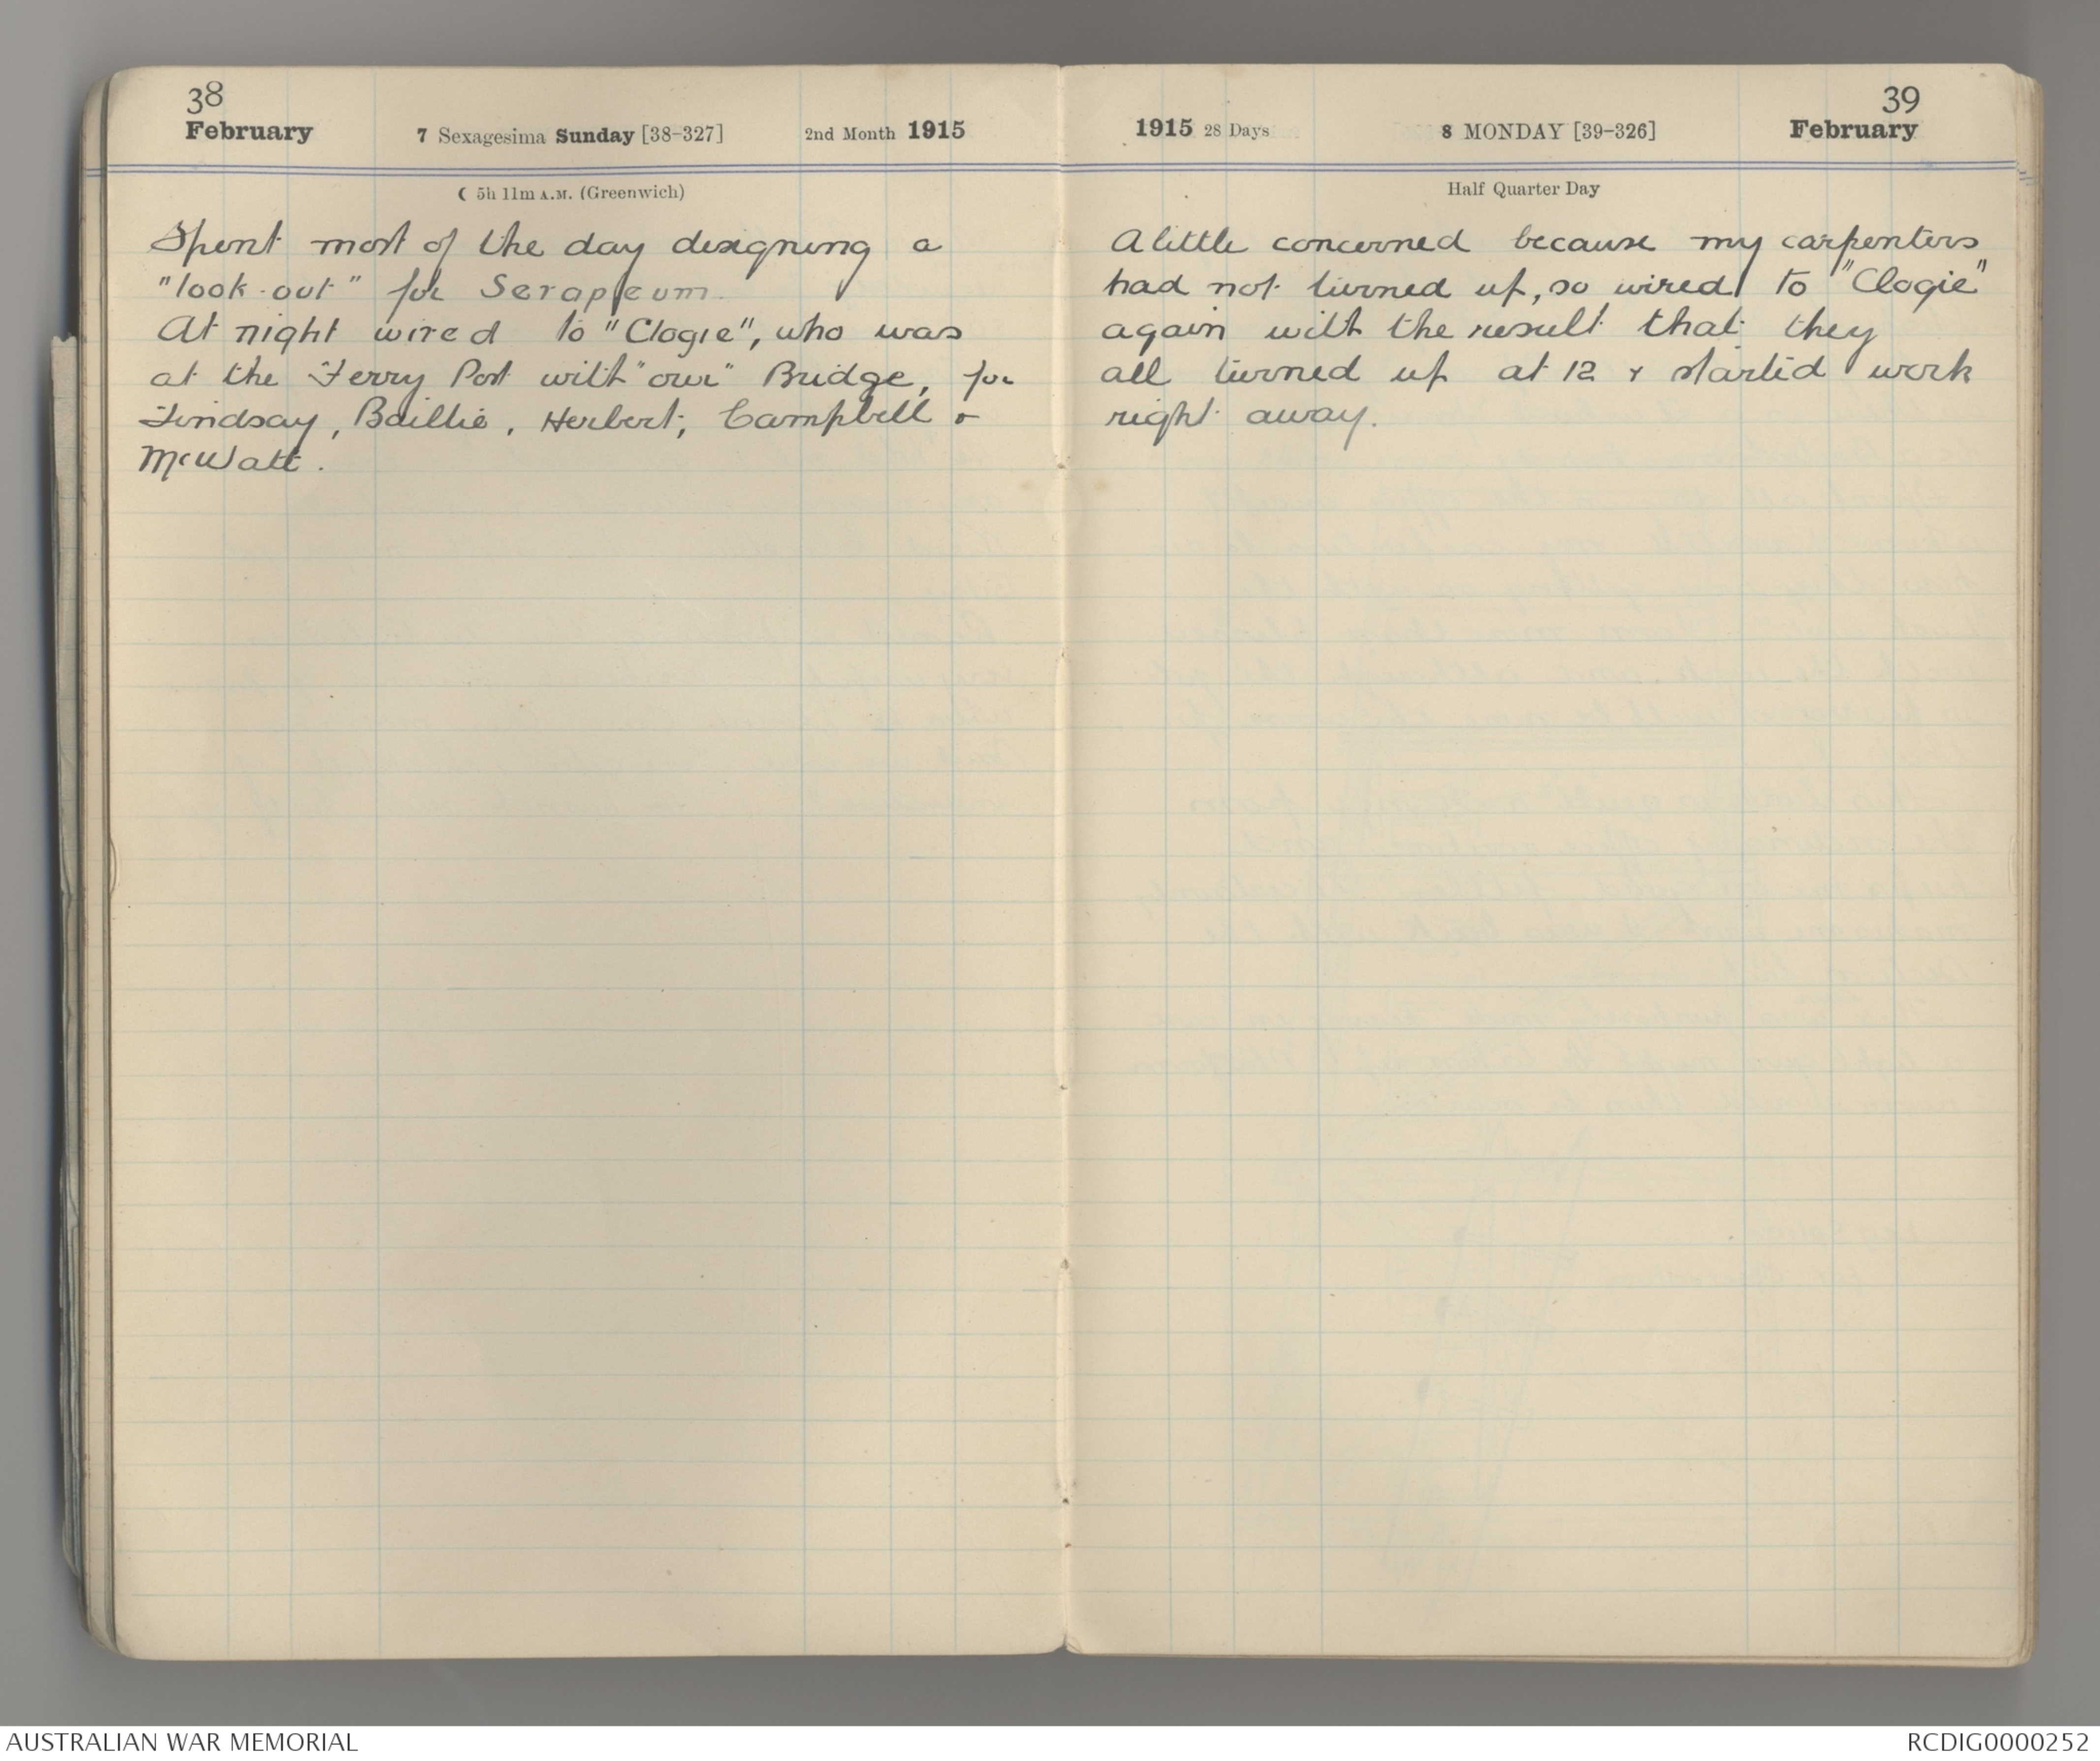 38
February 7 Sexagesima Sunday [38-327] 2nd Month 1915
☾ 5h 11m A.M. (Greenwich)
Spent most of the day designing a
"look-out" for Serapeum.
At night wired to "Clogie", who was
at the Ferry Post with "our" Bridge, for
Lindsay, Baillie, Herbert, Campbell &
McWatt.
39
1915 28 Days 8 MONDAY [39-326] February
Half Quarter Day
A little concerned because my carpenters
had not turned up, so wired to "Clogie"
again with the result that they
all turned up at 12 & started work
right away.
AUSTRALIAN WAR MEMORIAL RCDIG0000252